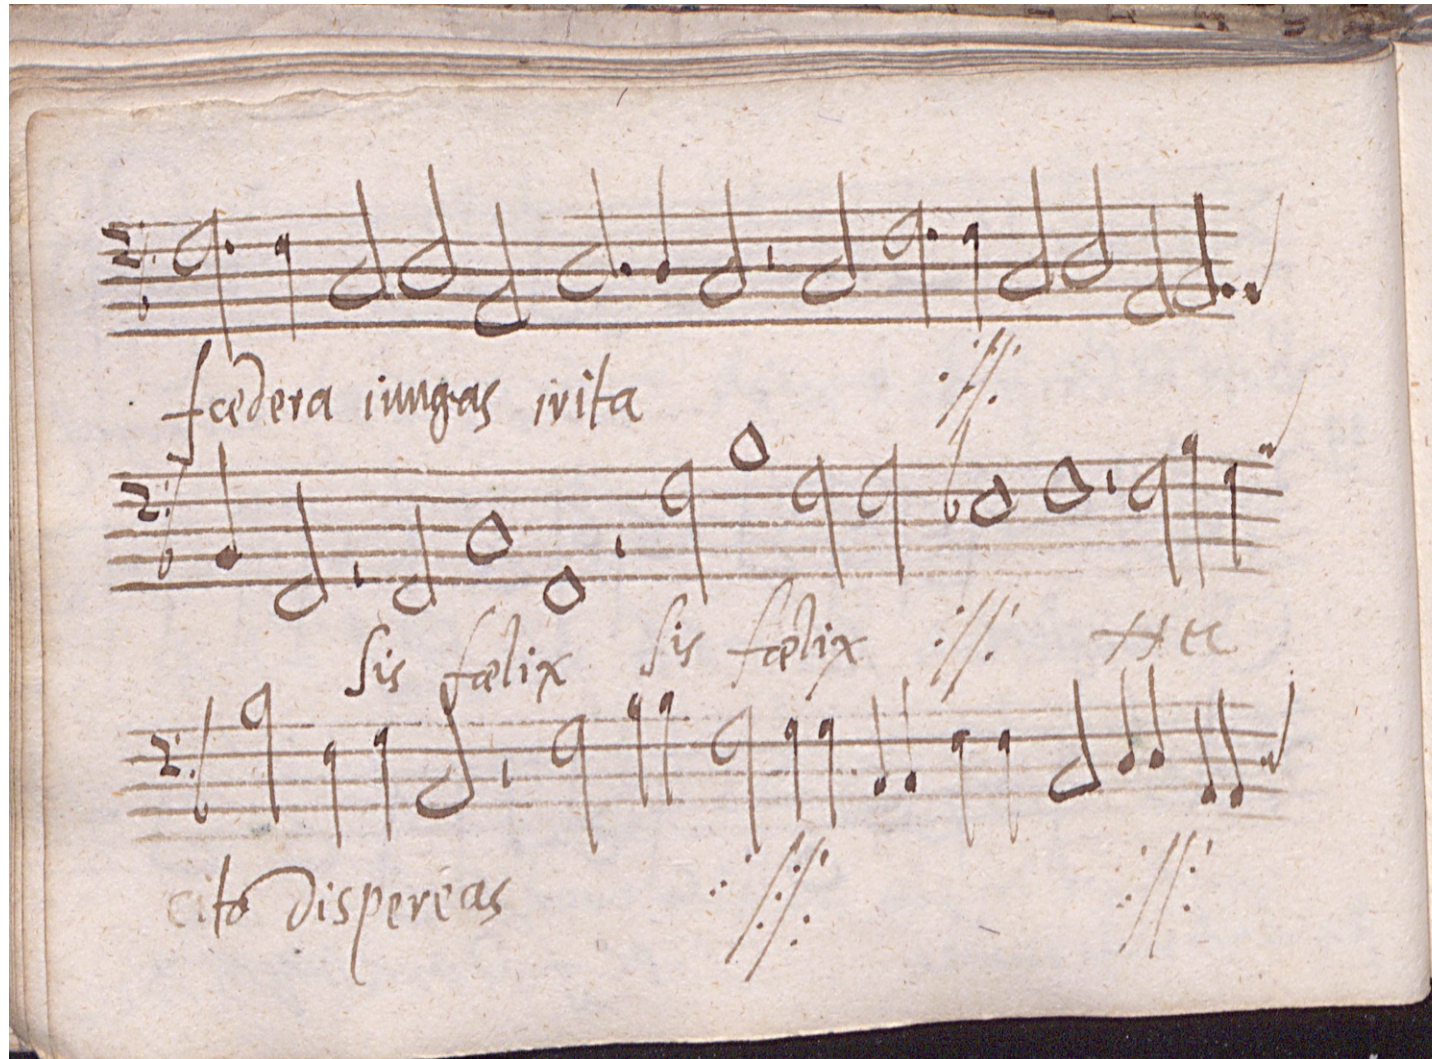 fœdera iungas irita
sis fœlix sis fœlix
cito dispereas